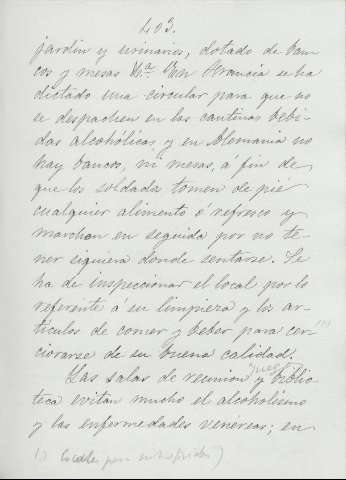 403.
jardin y urinarios, dotado de ban-
cos y mesas &.ª En Francia se ha
dictado una circular para que no
se despachen en las cantinas bebi-
das alcohólicas, y en Alemania no
hay bancos, ni mesas, a fin de
que los soldados tomen de pié
cualquier alimento ó refresco y
marchen en seguida por no te-
ner siquiera donde sentarse. Se
ha de inspeccionar el local por lo
referente á su limpieza y los ar-
tículos de comer y beber para cer-
ciorarse de su buena calidad. (1)
Las salas de reunion juegos y biblio-
teca evitan mucho el alcoholismo
y las enfermedades venéreas; en
1)